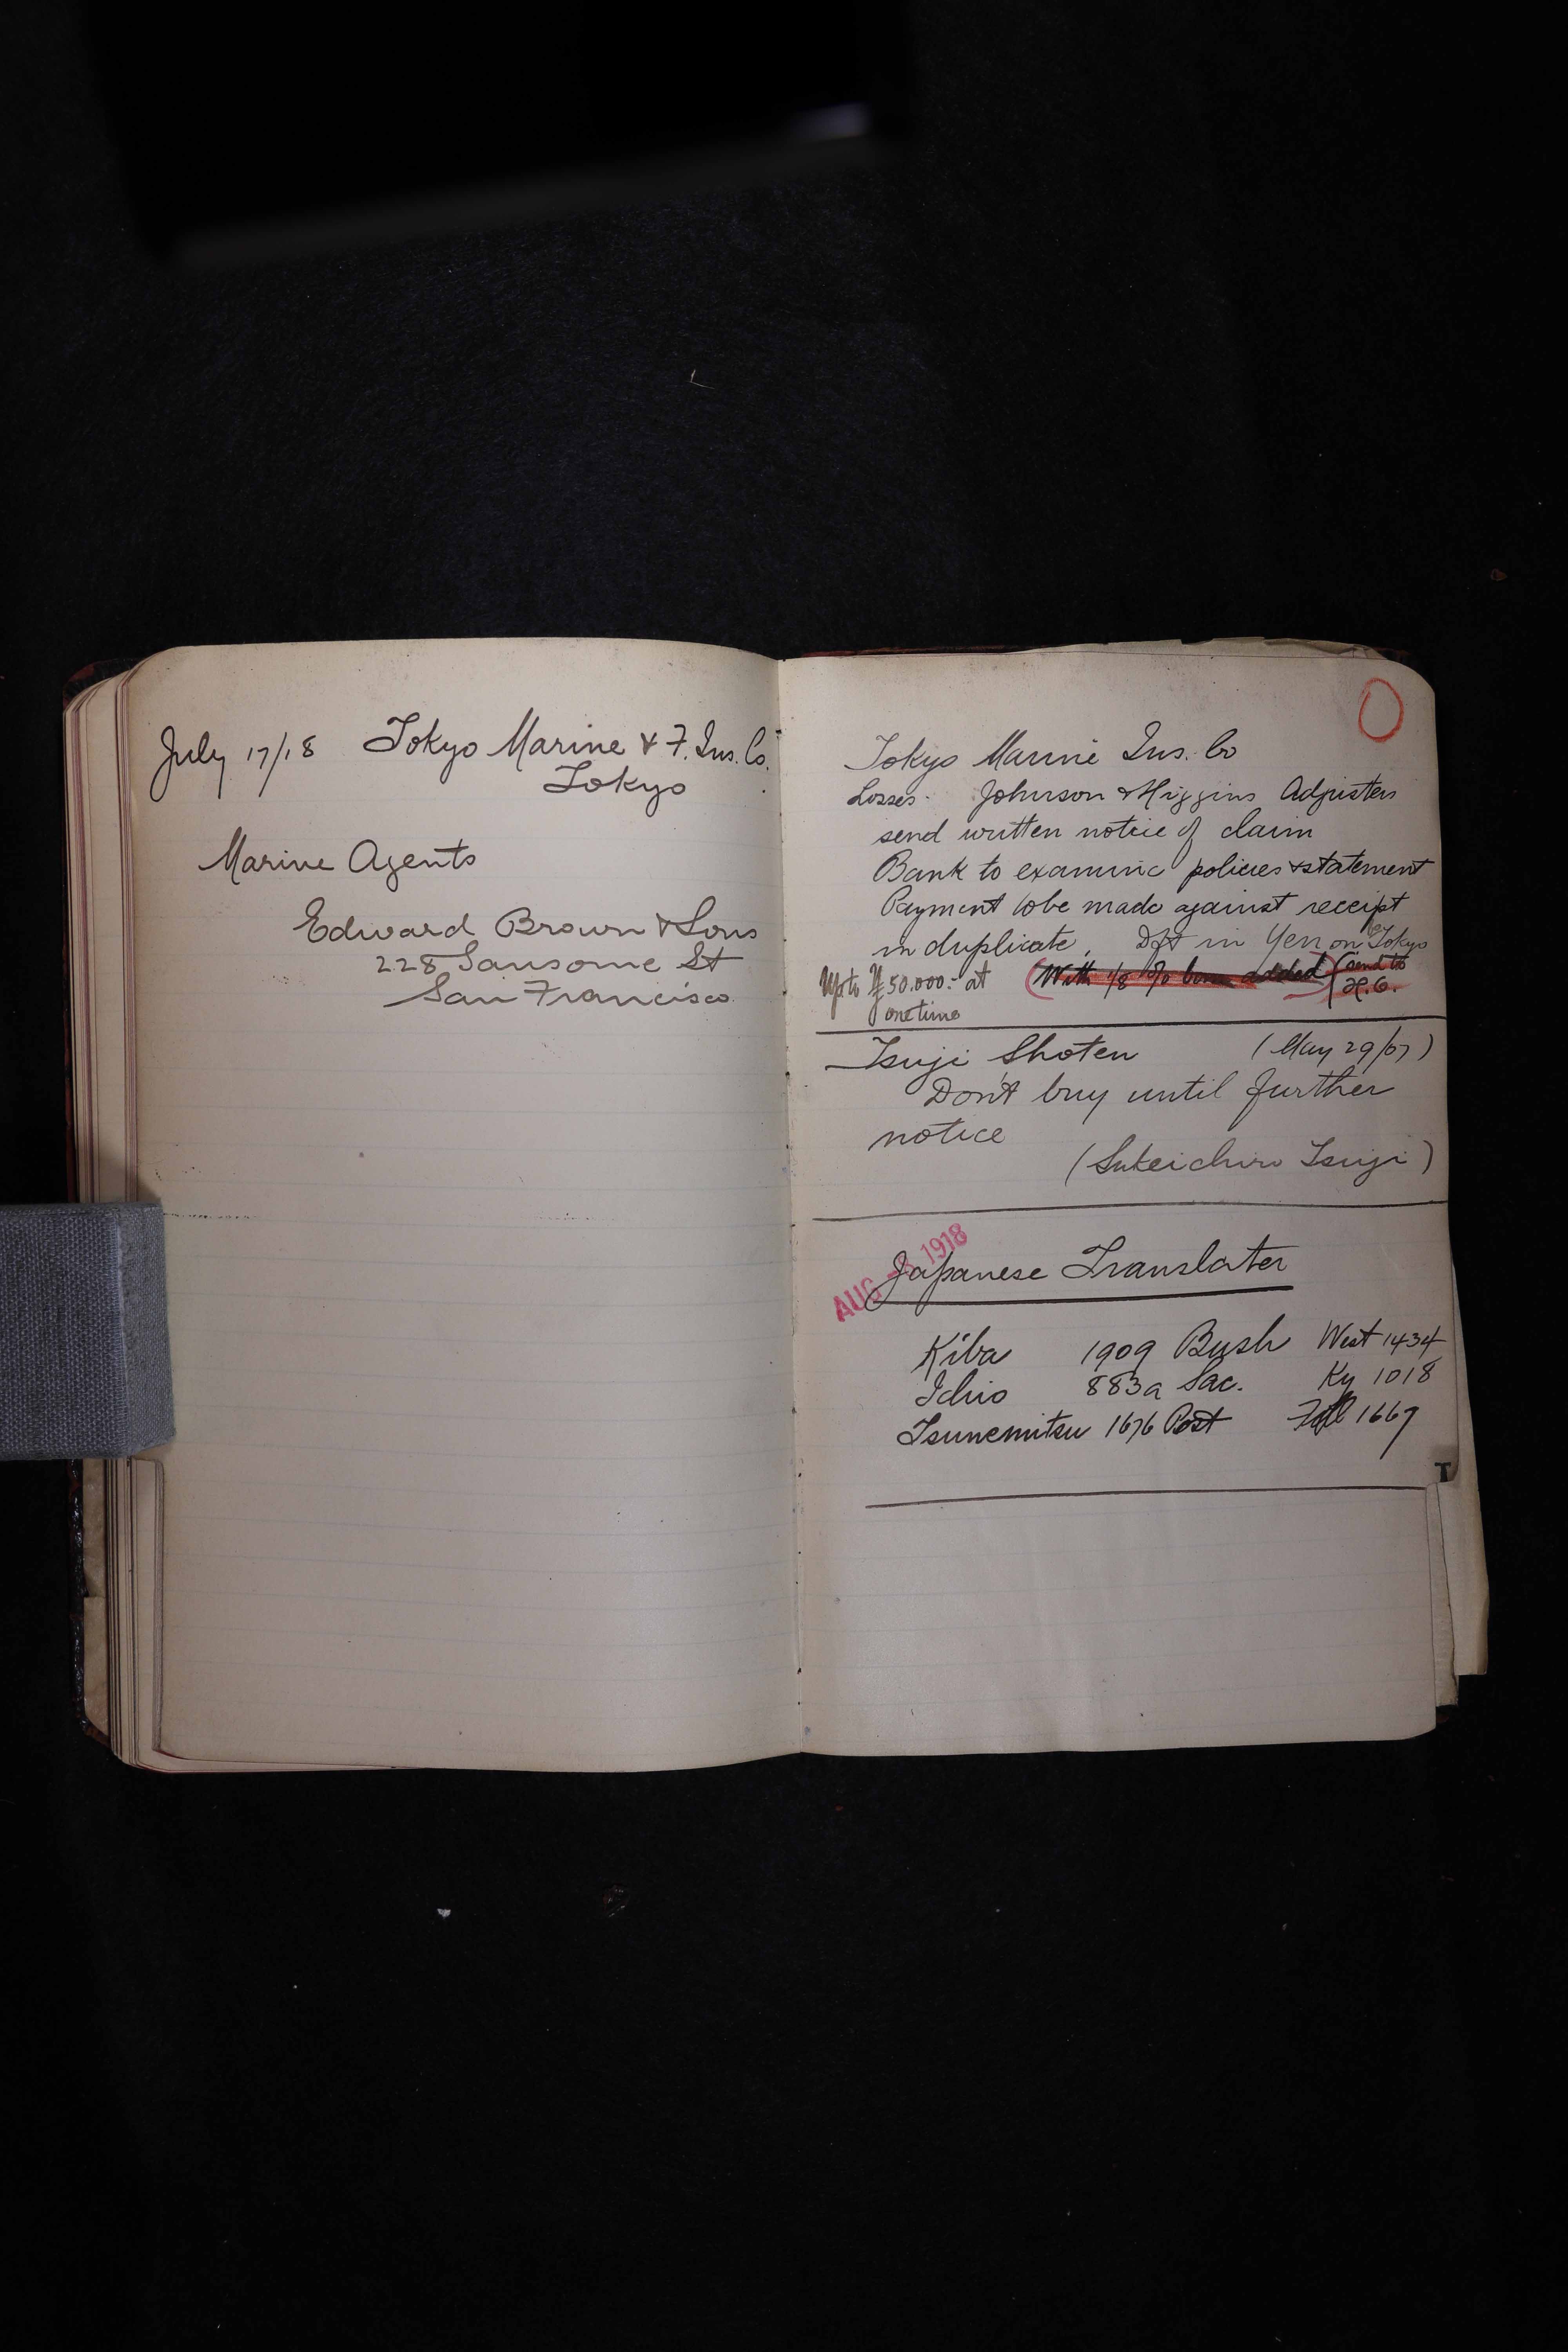 July 17/18 Tokyo Marine & F. Ins. Co.
Tokyo
Marine Agents
Edward Brown & Sons
228 Sansome St
San Francisco
Tokyo Marine Ins. Co
Losses - Johnson & Higgins Adjusters
send written notice of claim
Bank to examine policies & statement
Payment to be made against receipt
in duplicate, Dft in Yen on Tokyo
Up to ¥50.000.- at
one time
(With 1/8 % added) (send to
H.O.
Tsuji Shoten (May 29/07)
Don't buy until further
notice
(Sukeichiro Tsuji)
AUG 1918
Japanese Translater
Kiba 1909 Bush West 1434
Ichio 883a Sac. Ky 1018
Tsunemitsu 1676 Post 1669
T